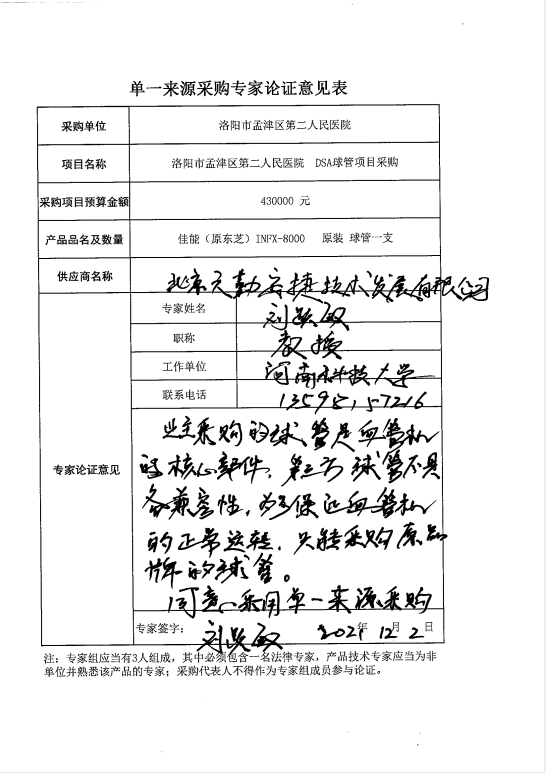 单一来源采购专家论证意见表
采购单位 洛阳市孟津区第二人民医院
项目名称 洛阳市孟津区第二人民医院 DSA球管项目采购
采购项目预算金额 430000 元
产品品名及数量 佳能（原东芝）INFX-8000 原装 球管一支
供应商名称 北京天勤安捷技术发展有限公司
专家姓名 刘跃敏
职称 教授
工作单位 河南科技大学
联系电话 13598157216
专家论证意见
业主采购的球管是血管机
的核心部件，第三方球管不具
备兼容性，为了保证血管机
的正常运转，只能采购原品
牌的球管。
同意采用单一来源采购
专家签字： 刘跃敏 2021年12月2日
注：专家组应当有3人组成，其中必须包含一名法律专家，产品技术专家应当为非
单位并熟悉该产品的专家；采购代表人不得作为专家组成员参与论证。